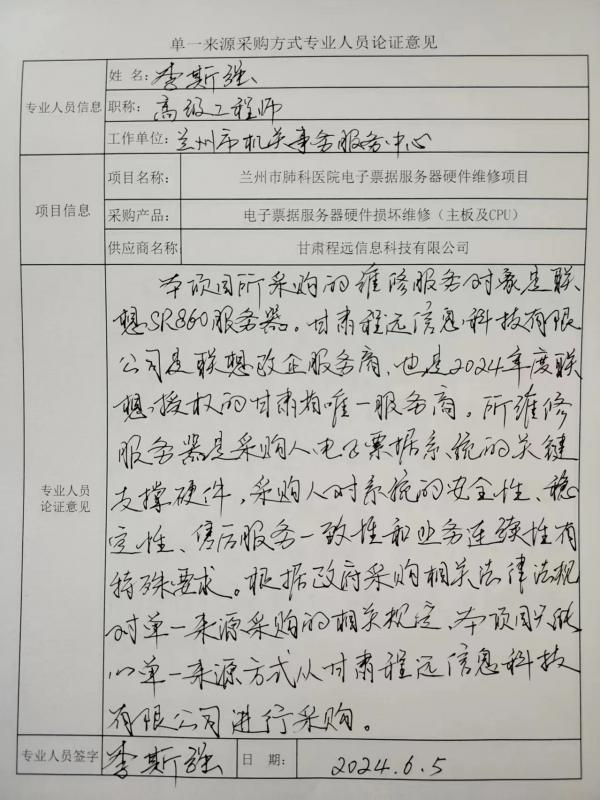 单一来源采购方式专业人员论证意见
专业人员信息
姓名：李斯强
职称：高级工程师
工作单位：兰州市机关事务服务中心
项目信息
项目名称： 兰州市肺科医院电子票据服务器硬件维修项目
采购产品： 电子票据服务器硬件损坏维修（主板及CPU）
供应商名称： 甘肃程远信息科技有限公司
专业人员
论证意见
本项目所采购的维修服务对象是联
想SR860服务器。甘肃程远信息科技有限
公司是联想政企服务商，也是2024年度联
想授权的甘肃省唯一服务商。所维修
服务器是采购人电子票据系统的关键
支撑硬件，采购人对系统的安全性、稳
定性、售后服务一致性和业务连续性有
特殊要求。根据政府采购相关法律法规
对单一来源采购的相关规定，本项目只能
以单一来源方式从甘肃程远信息科技
有限公司进行采购。
专业人员签字 李斯强 日期： 2024.6.5